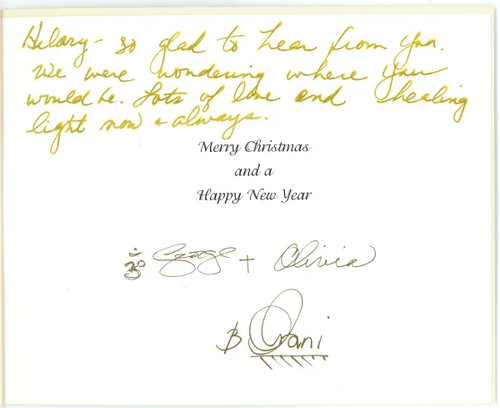 Hilary - so glad to hear from you.
We were wondering where you
would be. Lots of love and healing
light now & always.
Merry Christmas
and a
Happy New Year
ॐ George + Olivia
Dhani